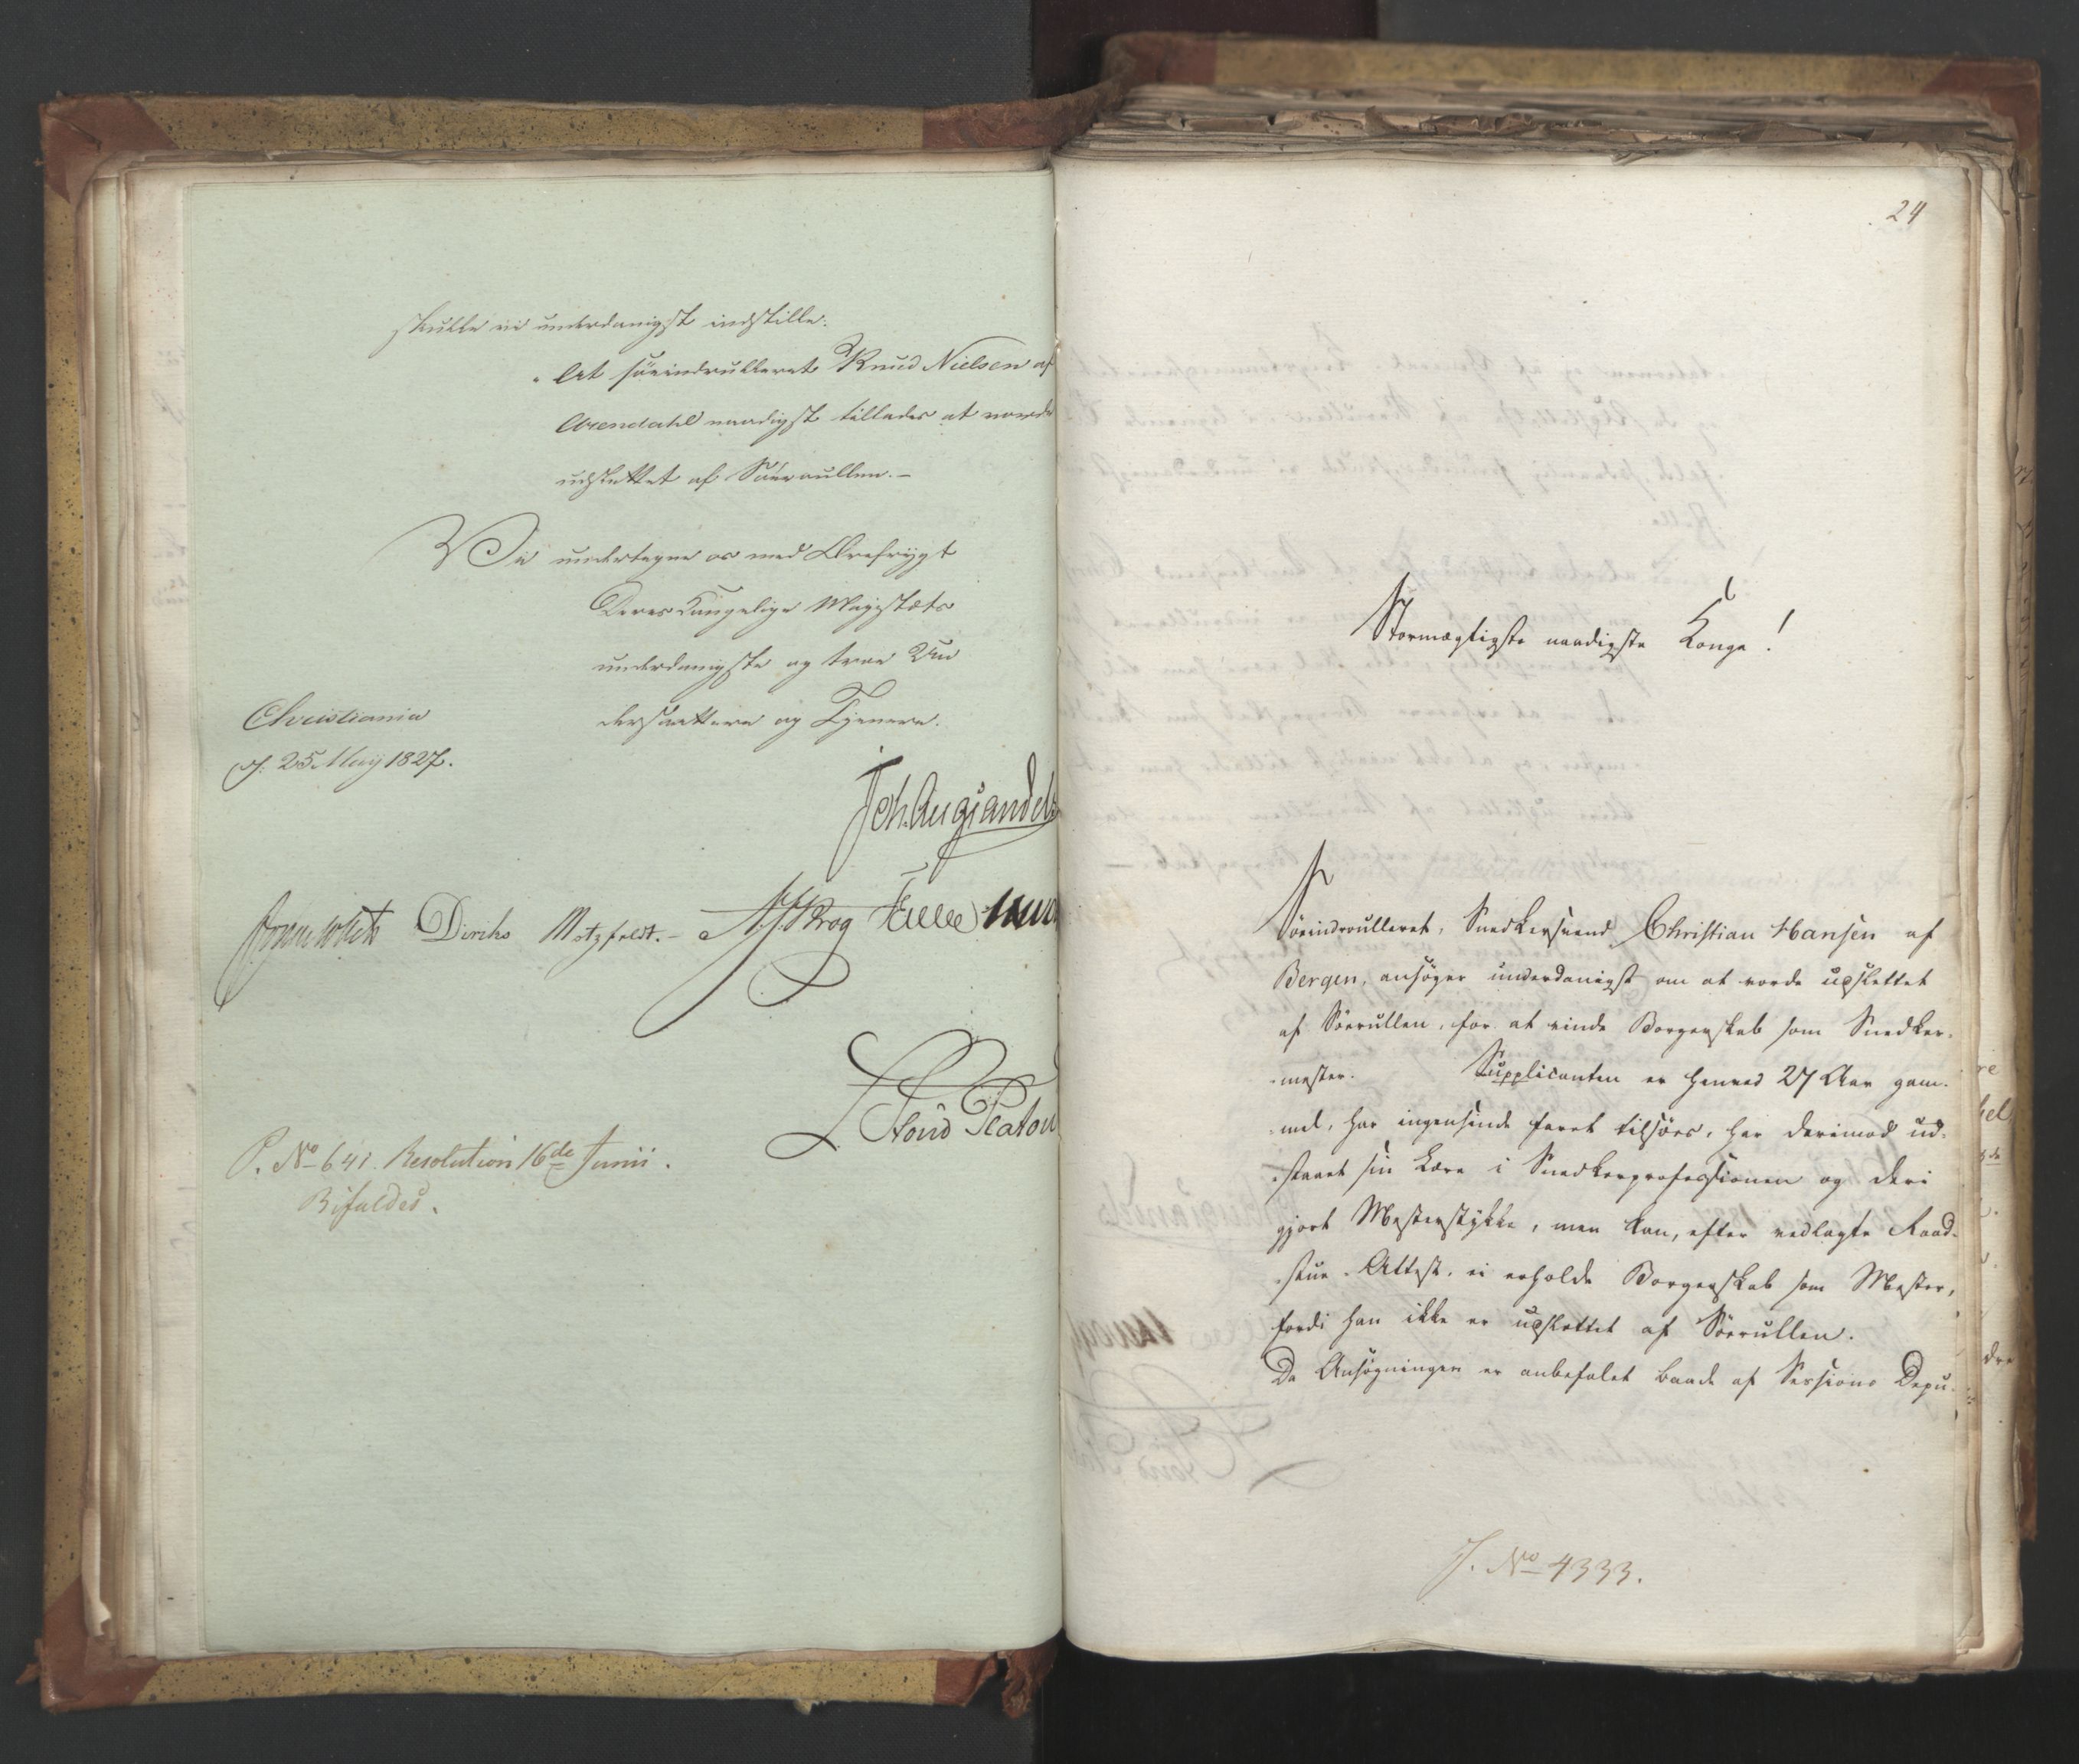 skulle vi underdanigst indstille:
"At søeindrulleret Knud Nielsen af
Arendahl naadigst tillades at vorde
udslettet af Søerullen.–
Vi undertegne os med Ærefrygt
Deres Kongelige Majestæts
underdanigste og troe Un
dersaattere og Tjenere.
Christiania
d: 25 May 1827.
Joh. Aug: Sandels
Sommerhielm Diriks Motzfeldt.– A. J. Krog
L
Stoud Platou
P. No 641. Resolution 16de Junii.
Bifaldes.
24
Stormægtigste naadigste Konge!
Søeindroulleret, Snedkersvend Christian Hansen af
Bergen, ansøger underdanigst om at vorde udslettet
af Søerullen, for at vinde Borgerskab som Snedker-
-mester. Supplicanten er henved 27 Aar gam-
-mel, har ingensinde faret tilsøes, har derimod ud-
-staaet sin Lære i Snedkerprofessionen og deri
gjort Mesterstykke, men kan, efter vedlagte Raad-
-stue-Attest, ei erholde Borgerskab som Mester,
fordi han ikke er udslettet af Søerullen.
Da Ansøgningen er anbefalet baade af Sessions Depu-
J. No 4333.